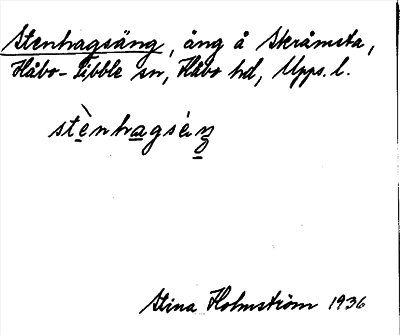 Stenhagsäng, äng å Skråmsta,
Håbo-Tibble sn, Håbo hd, Upps. l.
stènhagsèŋ
Stina Holmström 1936